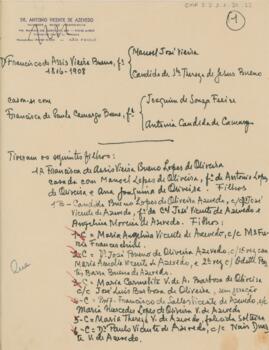 DR. ANTONIO VICENTE DE AZEVEDO
SÃO PAULO
1
Francisco de Assis Vieira Bueno, fº
1816-1908
Manoel José Vieira
Candida de Sta Thereza de Jesus Bueno
casou-se com
Francisca de Paula Camargo Bueno, fª
Joaquim de Souza Freire
Antonia Candida de Camargo
Tiveram os seguintes filhos:
1A Francisca de Assis Vieira Bueno Lopes de Oliveira
casada com Manoel Lopes de Oliveira, fº de Antonio Lopes
de Oliveira e Ana Joaquina de Oliveira. Filhos
1B - Candida Bueno Lopes de Oliveira Azevedo, c/ José
Vicente de Azevedo, fº de José Vicente de Azevedo e
Angelina Moreira de Azevedo. Filhos
1-C = Maria Angelina Vicente de Azevedo, c/c
2-C = Dr José Bueno de Oliveira Azevedo, c/c 1ª vez com
Maria Amelia Vicente de Azevedo, e 2ª vez c/
Barros Bueno de Azevedo.
3-C = Maria Carmelita V. de A. Barbosa de Oliveira
c/c José Luiz Barbosa de Oliveira,
4-C = Francisco de Salles Vicente de Azevedo c/c
Maria Mercedes Lopes de Oliveira V. de Azevedo.
5-C = Maria Thereza V. de Azevedo, falecida solteira
6-C = Dr Paulo Vicente de Azevedo, c/c Nair
V. de Azevedo.